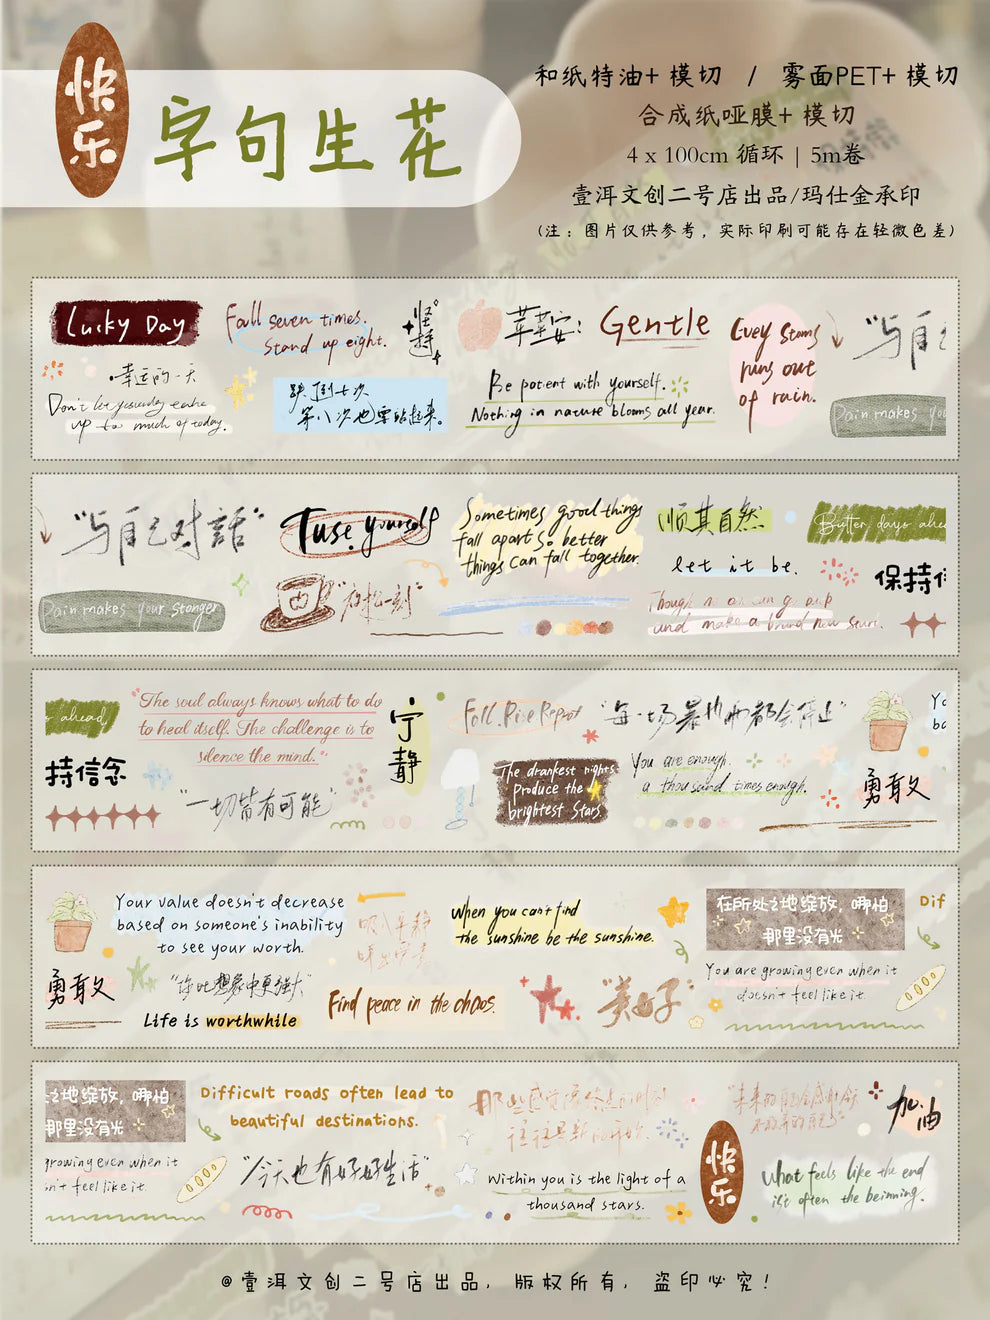 快乐
字句生花
和纸特油+ 模切 / 雾面PET+ 模切
合成纸哑膜+ 模切
4 x 100cm 循环 | 5m卷
壹洱文创二号店出品/玛仕金承印
(注：图片仅供参考，实际印刷可能存在轻微色差)
Lucky Day
·幸运的一天
Don't let yesterday
up too much of today.
Fall seven times.
Stand up eight.
跌倒七次
第八次也要站起来。
苹苹安安!
Gentle
Be patient with yourself.
Nothing in nature blooms all year.
Evey Stoms
runs out
of rain.
"与自己
Pain makes you
"与自己对話"
Pain makes your stonger
Tuse yourself
"放松一刻"
Sometimes good things
fall apart So better
things can fall together.
顺其自然
let it be.
Though no one can go
and make a brand new start.
Better days ahead
保持信
s ahead,
持信念
"The soul always knows what to do
to heal itself. The challenge is to
silence the mind."
"一切皆有可能"
宁静
Fall.Rise.Repeat
"每一场暴风雨都会停止"
The drankest nights
produce the
brightest Stars.
You are enough.
a thousand times enough.
勇敢
Yo
ba
勇敢
Your value doesn't decrease
based on someone's inability
to see your worth.
"你比想象中更强大"
Life is worthwhile
吸入平静
Find peace in the chaos.
When you can't find
the sunshine be the sunshine.
"美好"
在所处之地绽放，哪怕
那里没有光
You are growing even when it
doesn't feel like it.
Dif
之地绽放，哪怕
那里没有光
growing even when it
n't feel like it.
Difficult roads often lead to
beautiful destinations.
"今天也有好好生活"
那些感觉像终点的时刻
往往是新的开始.
Within you is the light of a
thousand stars.
快乐
加油
What feels like the end
is't often the beinning.
@壹洱文创二号店出品，版权所有，盗印必究！